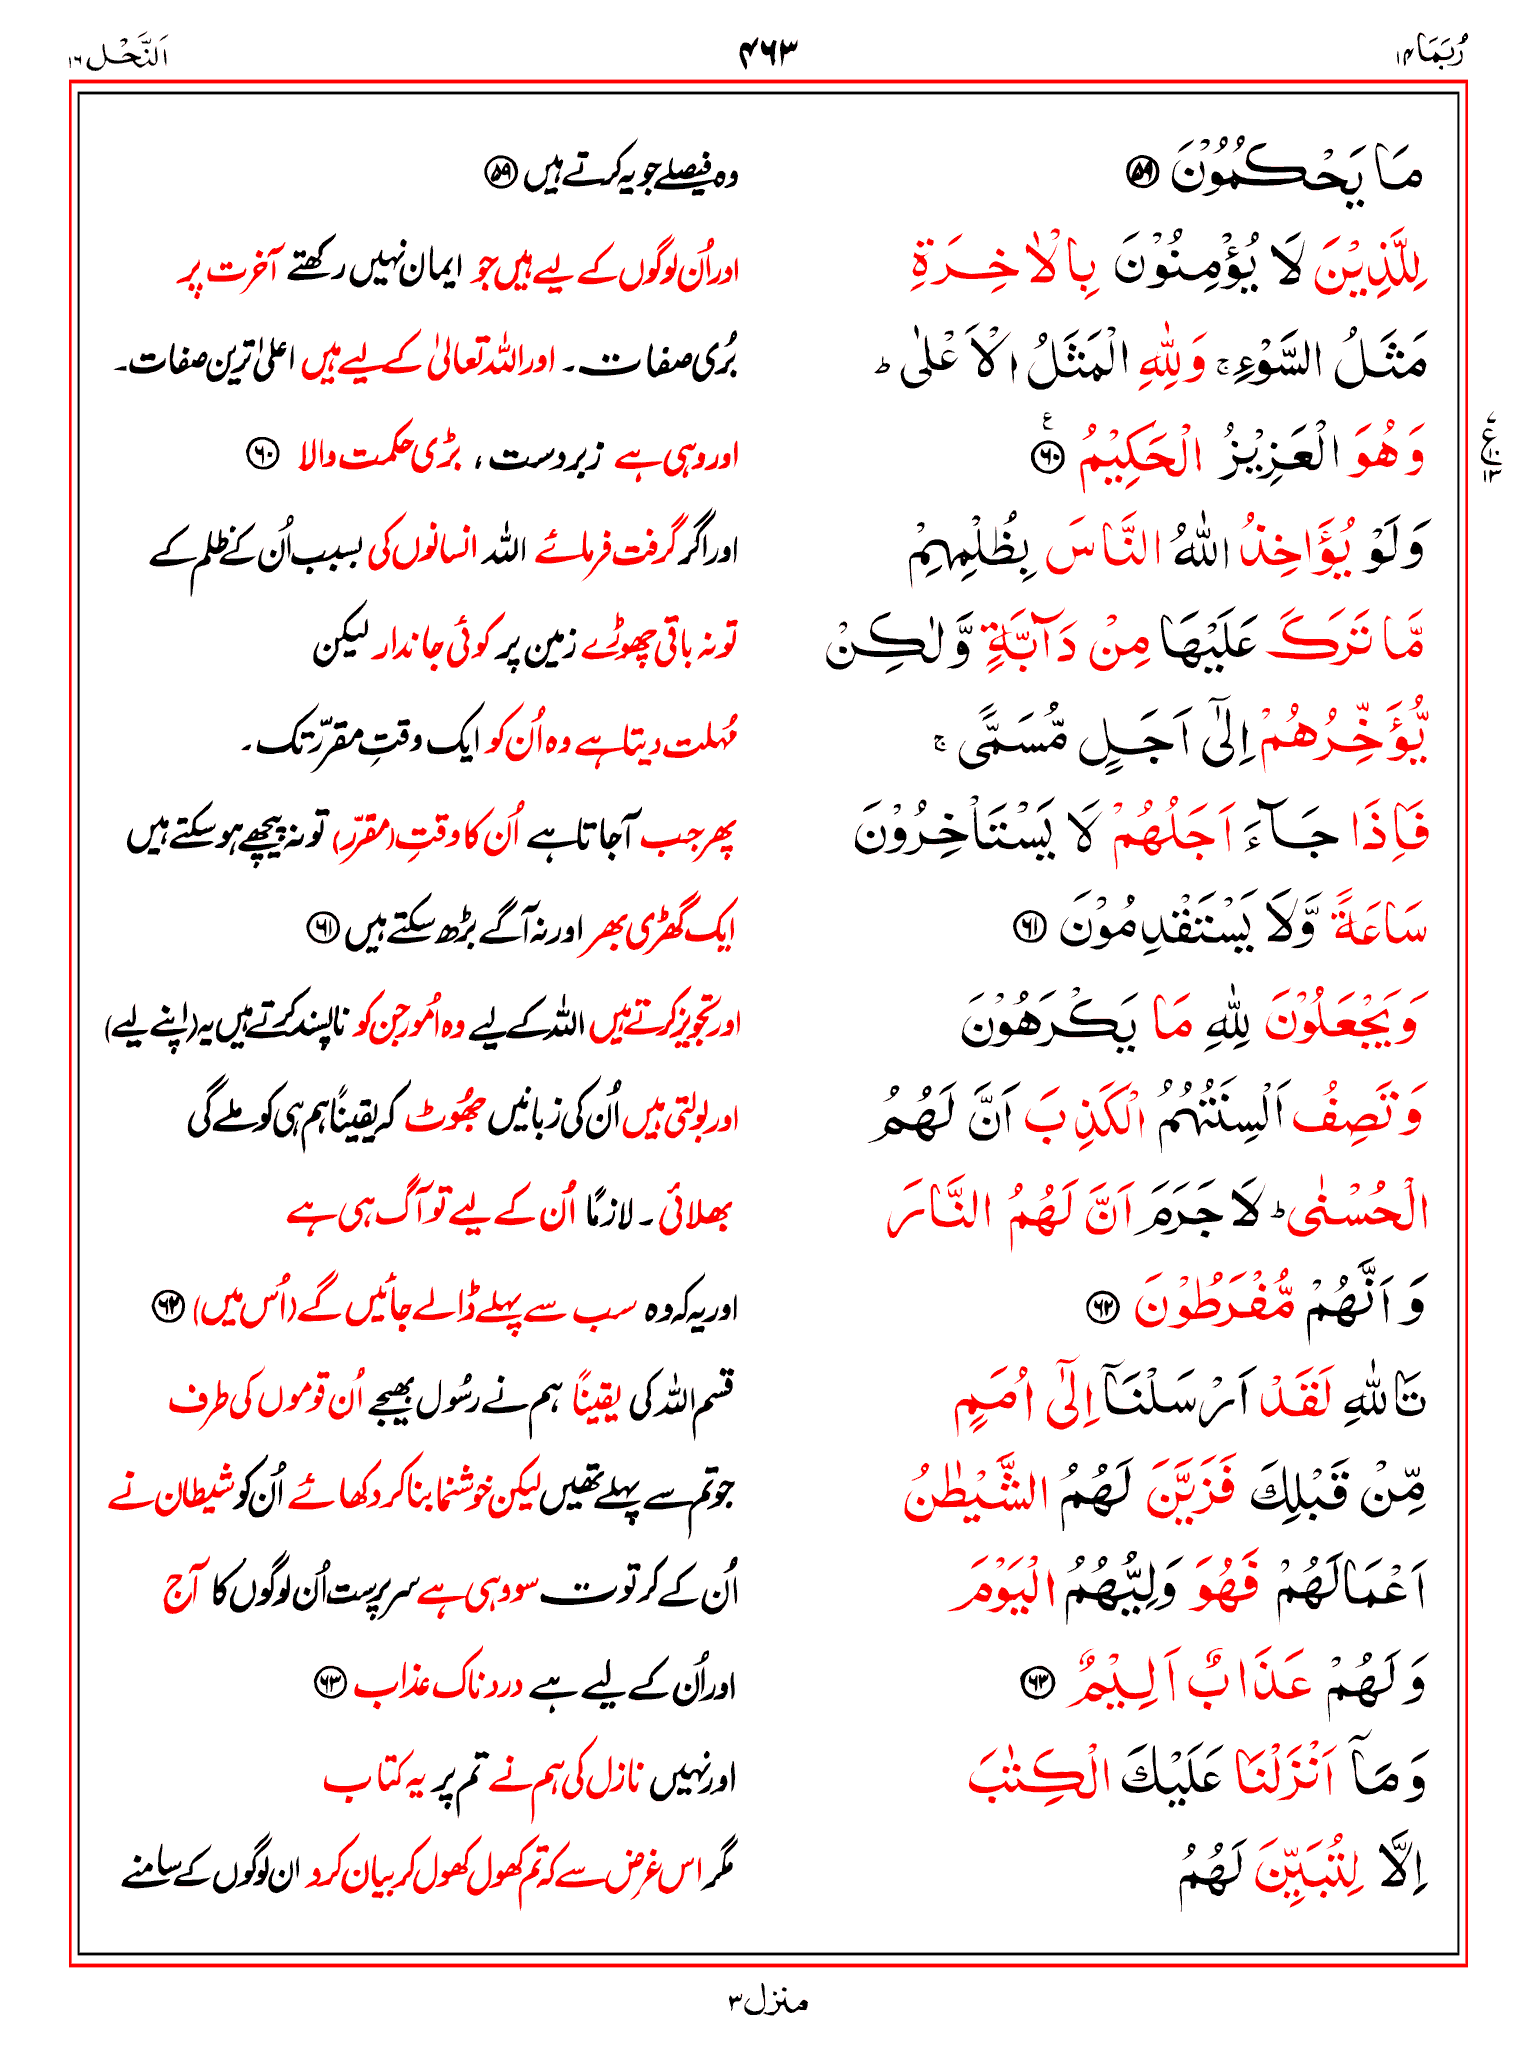 رُبَمَا ۱۴
۴۶۳
اَلنَّحْل ۱۶
مَا يَحْكُمُوْنَ ۵۹
وہ فیصلے جو یہ کرتے ہیں ۵۹
لِلَّذِيْنَ لَا يُؤْمِنُوْنَ بِالْاٰخِرَةِ
اور اُن لوگوں کے لیے ہیں جو ایمان نہیں رکھتے آخرت پر
مَثَلُ السَّوْءِ ۚ وَلِلّٰهِ الْمَثَلُ الْاَعْلٰى ؕ
بُری صفات۔ اور اللہ تعالیٰ کے لیے ہیں اعلیٰ ترین صفات۔
وَهُوَ الْعَزِيْزُ الْحَكِيْمُ ۶۰ ع
اور وہی ہے زبردست، بڑی حکمت والا ۶۰
۷ ع ۱۰ ۱۳
وَلَوْ يُؤَاخِذُ اللّٰهُ النَّاسَ بِظُلْمِهِمْ
اور اگر گرفت فرمائے اللہ انسانوں کی بسبب اُن کے ظلم کے
مَّا تَرَكَ عَلَيْهَا مِنْ دَآبَّةٍ وَّلٰكِنْ
تو نہ باقی چھوڑے زمین پر کوئی جاندار لیکن
يُّؤَخِّرُهُمْ اِلٰٓى اَجَلٍ مُّسَمًّى ۚ
مُہلت دیتا ہے وہ اُن کو ایک وقتِ مقررّ تک۔
فَاِذَا جَآءَ اَجَلُهُمْ لَا يَسْتَاْخِرُوْنَ
پھر جب آ جاتا ہے اُن کا وقتِ (مقررّ) تو نہ پیچھے ہو سکتے ہیں
سَاعَةً وَّلَا يَسْتَقْدِمُوْنَ ۶۱
ایک گھڑی بھر اور نہ آگے بڑھ سکتے ہیں ۶۱
وَيَجْعَلُوْنَ لِلّٰهِ مَا يَكْرَهُوْنَ
اور تجویز کرتے ہیں اللہ کے لیے وہ اُمور جن کو ناپسند کرتے ہیں یہ (اپنے لیے)
وَتَصِفُ اَلْسِنَتُهُمُ الْكَذِبَ اَنَّ لَهُمُ
اور بولتی ہیں اُن کی زبانیں جھُوٹ کہ یقینًا ہم ہی کو ملے گی
الْحُسْنٰى ؕ لَا جَرَمَ اَنَّ لَهُمُ النَّارَ
بھلائی۔ لازمًا اُن کے لیے تو آگ ہی ہے
وَاَنَّهُمْ مُّفْرَطُوْنَ ۶۲
اور یہ کہ وہ سب سے پہلے ڈالے جائیں گے (اُس میں) ۶۲
تَاللّٰهِ لَقَدْ اَرْسَلْنَآ اِلٰٓى اُمَمٍ
قسم اللہ کی یقینًا ہم نے رسُول بھیجے اُن قوموں کی طرف
مِّنْ قَبْلِكَ فَزَيَّنَ لَهُمُ الشَّيْطٰنُ
جو تم سے پہلے تھیں لیکن خوشنما بنا کر دکھائے اُن کو شیطان نے
اَعْمَالَهُمْ فَهُوَ وَلِيُّهُمُ الْيَوْمَ
اُن کے کرتوت سو وہی ہے سرپرست اُن لوگوں کا آج
وَلَهُمْ عَذَابٌ اَلِيْمٌ ۶۳
اور اُن کے لیے ہے دردناک عذاب ۶۳
وَمَآ اَنْزَلْنَا عَلَيْكَ الْكِتٰبَ
اور نہیں نازل کی ہم نے تم پر یہ کتاب
اِلَّا لِتُبَيِّنَ لَهُمُ
مگر اس غرض سے کہ تم کھول کھول کر بیان کرد و ان لوگوں کے سامنے
منزل ۳